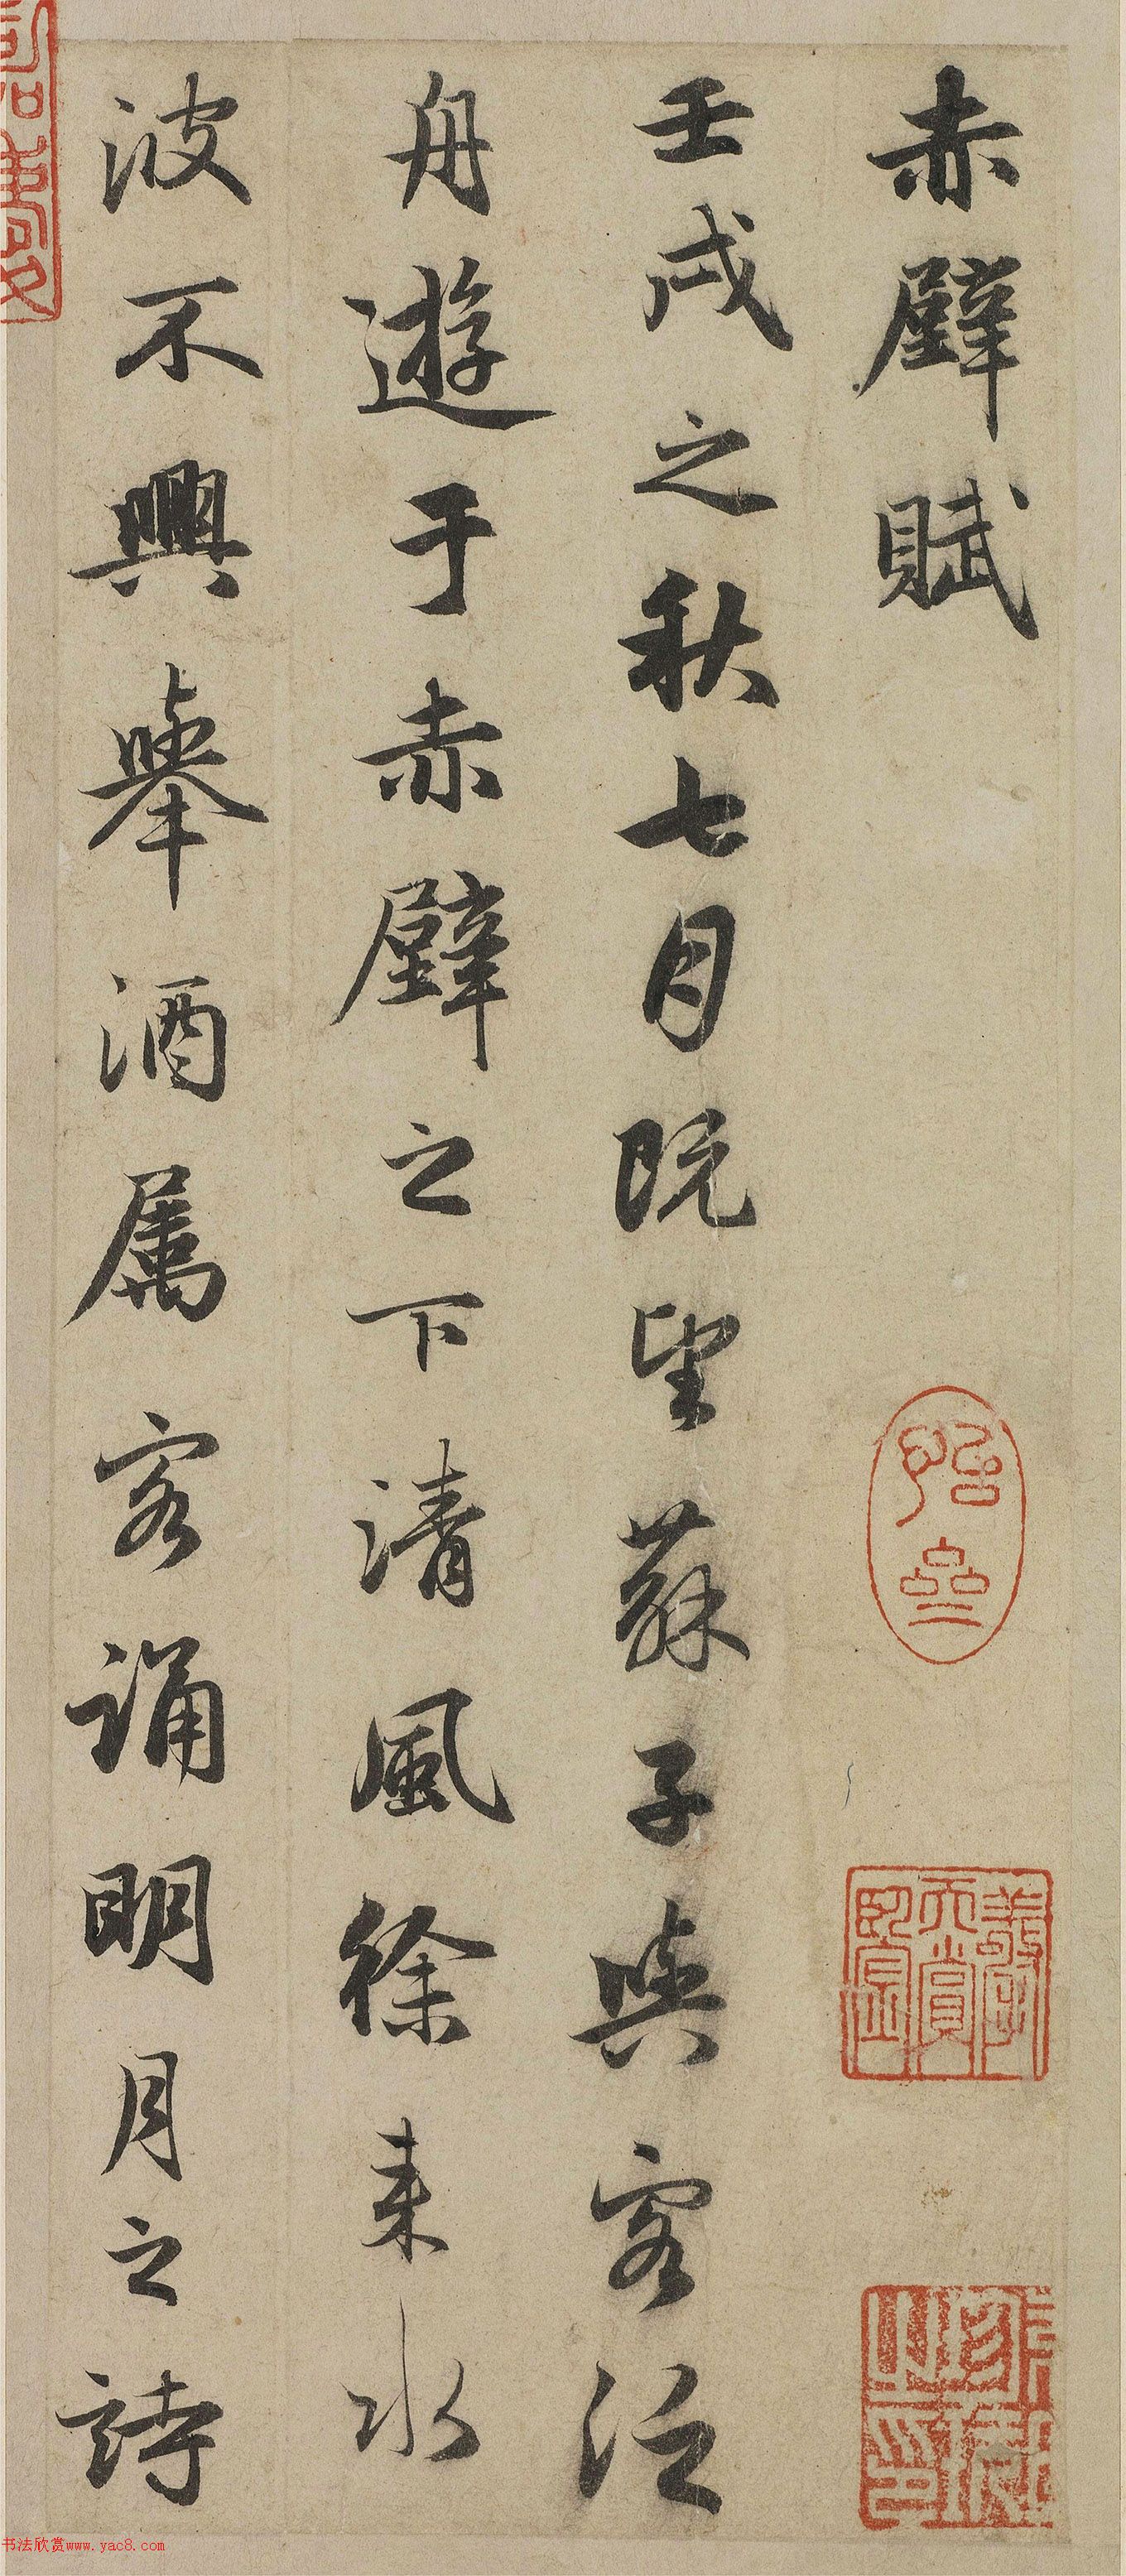 赤壁賦
壬戌之秋七月既望蘇子與客泛
舟遊于赤壁之下清風徐来水
波不興舉酒属客誦明月之詩
书法欣赏www.yac8.com